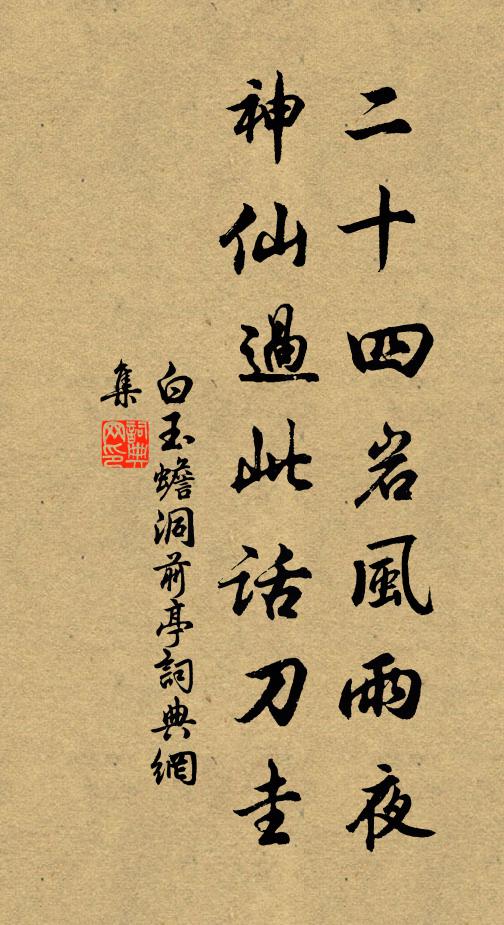 二十四岩風雨夜
神仙過此話刀圭
白玉蟾洞前亭詞典網
集
詞典
网印